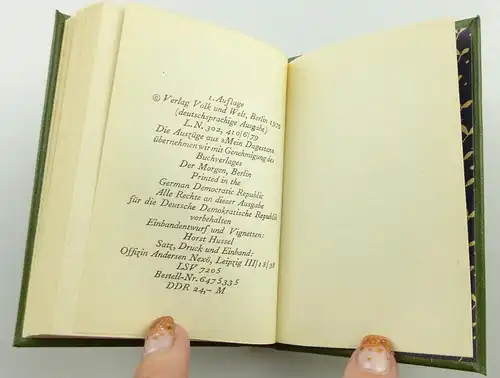 1. Auflage
© Verlag Volk und Welt, Berlin 1979
(deutschsprachige Ausgabe)
L. N. 302, 410/6/79
Die Auszüge aus »Mein Dagestan«
übernehmen wir mit Genehmigung des
Buchverlages
Der Morgen, Berlin
Printed in the
German Democratic Republic
Alle Rechte an dieser Ausgabe
für die Deutsche Demokratische Republik
vorbehalten
Einbandentwurf und Vignetten:
Horst Hussel
Satz, Druck und Einband:
Offizin Andersen Nexö, Leipzig III/18/38
LSV 7205
Bestell-Nr. 647 533 5
DDR 24,– M